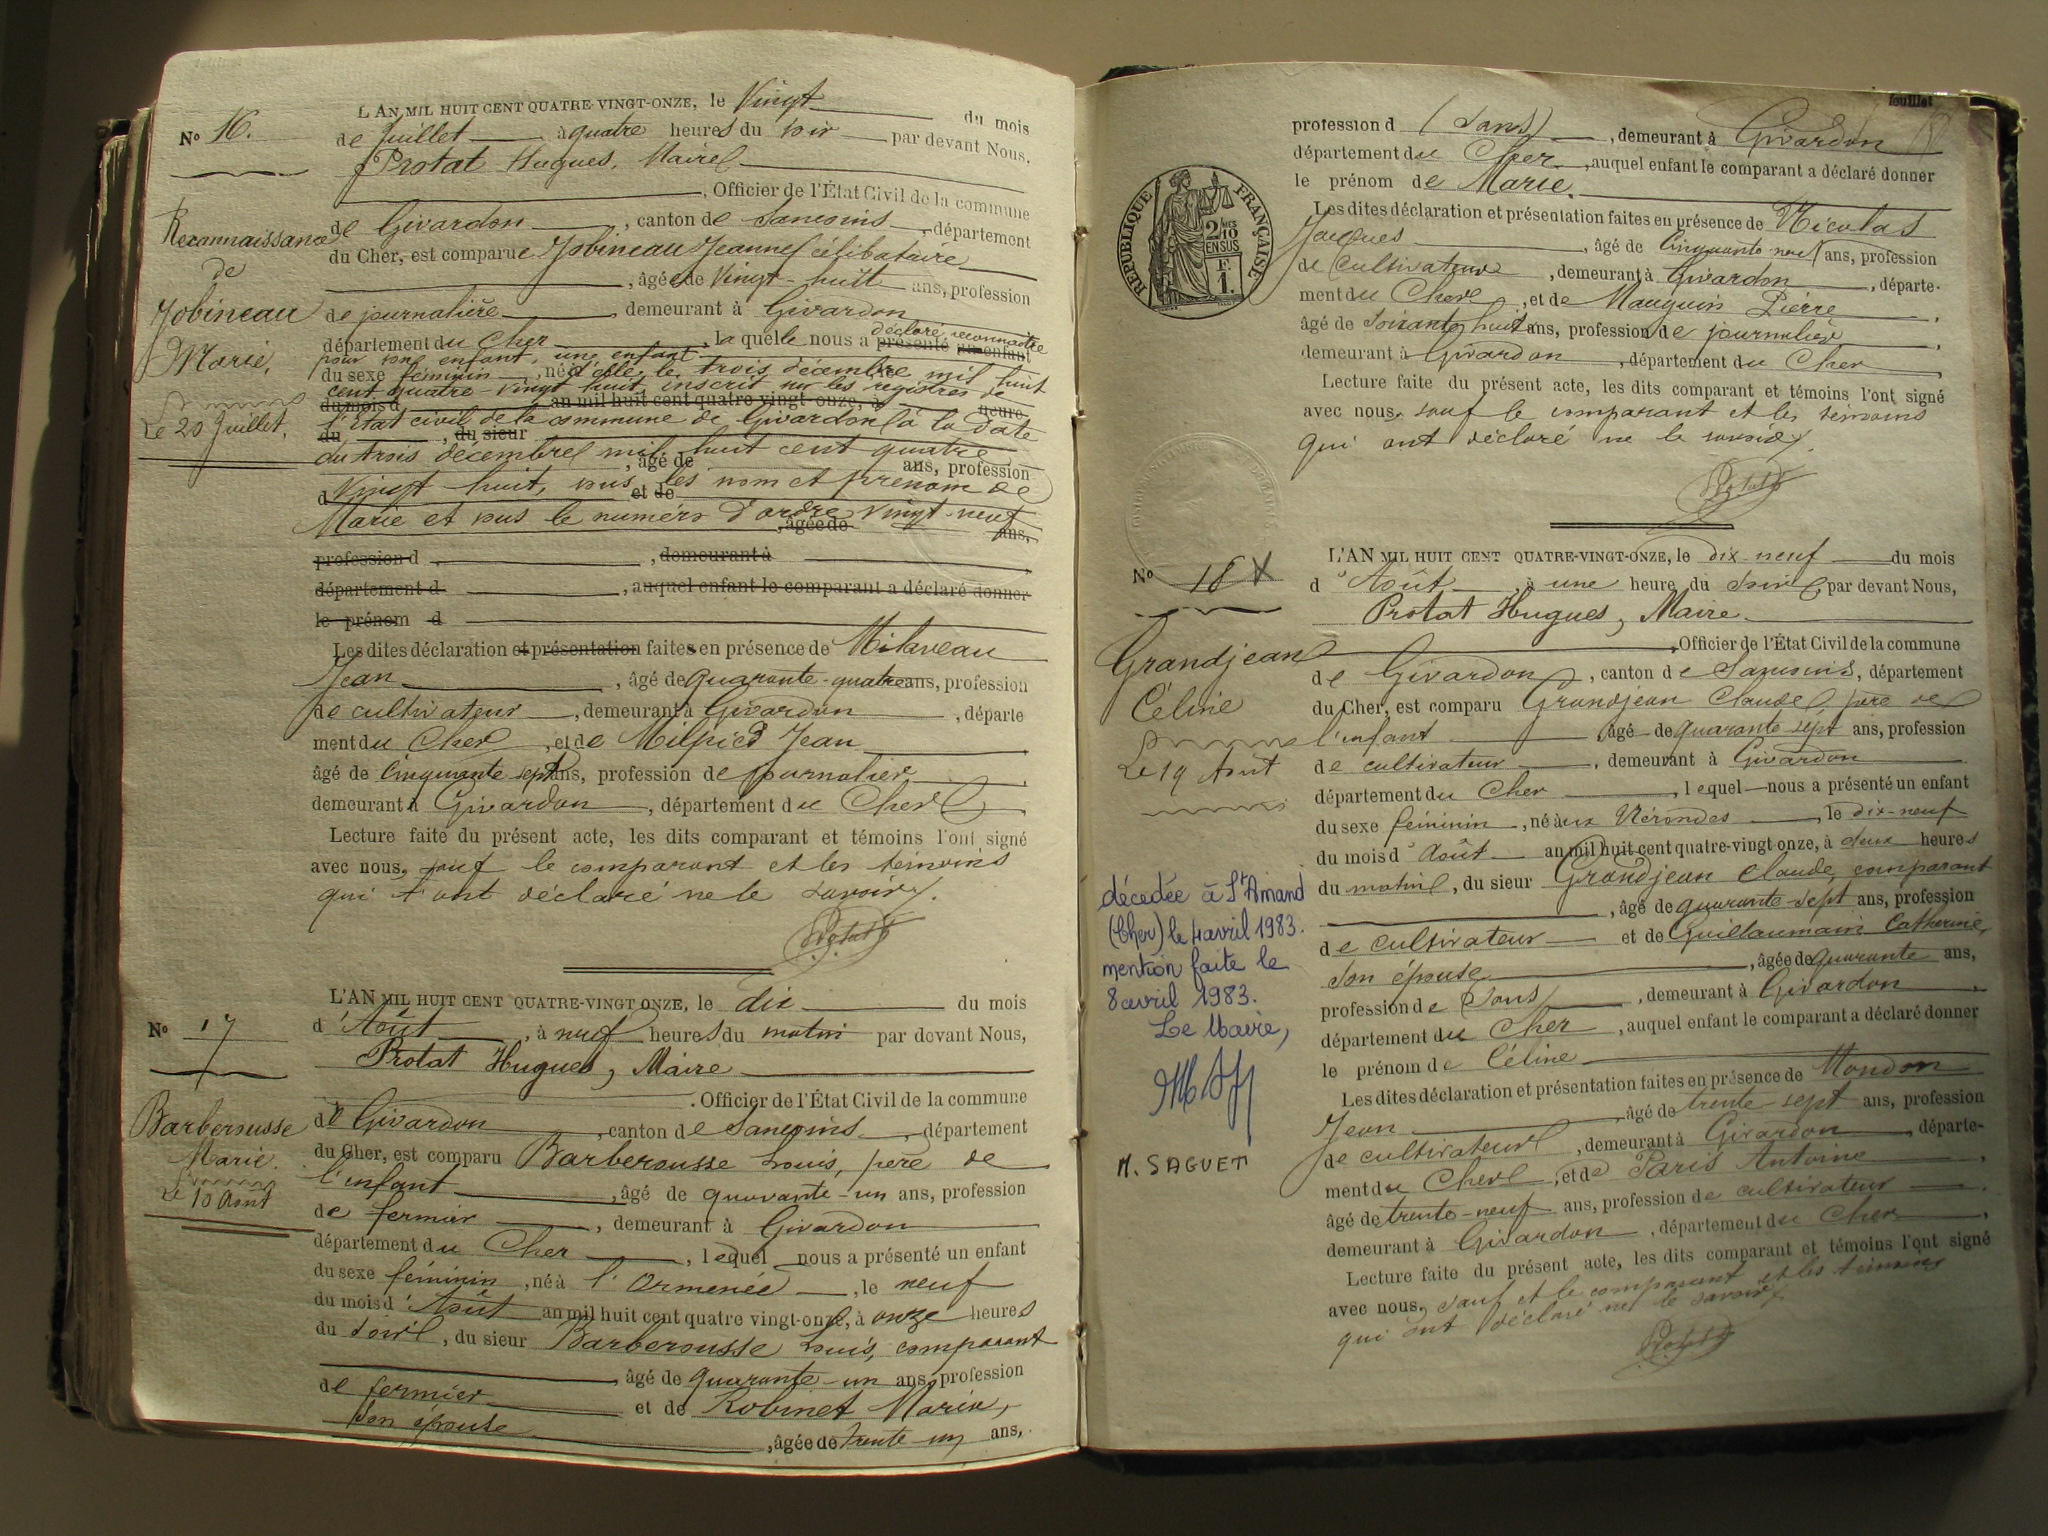 L'AN MIL HUIT CENT QUATRE-VINGT-ONZE, le Vingt du mois
No 16.
de Juillet à quatre heures du soir par devant Nous.
Protat Hugues, Maire
, Officier de l'État Civil de la commune
de Givardon, canton de Sancoins, département
Reconnaissance
de
Jobineau
Marie,
Le 20 Juillet.
du Cher, est comparue Jobineau Jeanne célibataire
, âgée de Vingt-huit ans, profession
de journalière demeurant à Givardon
déclaré reconnaître
département du Cher, la quelle nous a présenté un enfant
pour son enfant, une enfant
du sexe féminin, née d'elle, le trois décembre mil huit
cent quatre-vingt huit, inscrit sur les registres de
du mois d an mil huit cent quatre vingt-onze, à heure
l'Etat civil de la commune de Givardon à la date
du , du sieur
du trois décembre mil huit cent quatre
, âgé de ans, profession
Vingt huit, sous les nom et prénom de
d et de
Marie et sous le numéro d'ordre vingt-neuf
, âgée de ans,
profession d , demeurant à
département d , auquel enfant le comparant a déclaré donner
le prénom d
Les dites déclaration et présentation faites en présence de Milaveau
Jean, âgé de quarante-quatre ans, profession
de cultivateur, demeurant à Givardon, départe
ment du Cher, et de Milpied Jean
âgé de Cinquante sept ans, profession de journalier
demeurant à Givardon, département du Cher
Lecture faite du présent acte, les dits comparant et témoins l'ont signé
avec nous, sauf le comparant et les témoins
qui l'ont déclaré ne le savoir.
Protat
L'AN MIL HUIT CENT QUATRE-VINGT ONZE, le dix du mois
No 17
d'Août, à neuf heures du matin par devant Nous,
Protat Hugues, Maire
. Officier de l'État Civil de la commune
Barberousse
Marie.
Le 10 Aout
de Givardon, canton de Sancoins, département
du Cher, est comparu Barberousse Louis, père de
l'enfant, âgé de quarante-un ans, profession
de fermier, demeurant à Givardon
département du Cher, lequel nous a présenté un enfant
du sexe féminin, né à l'Ormenée, le neuf
du mois d'Août an mil huit cent quatre vingt-onze, à onze heures
du soir, du sieur Barberousse Louis, comparant
, âgé de quarante-un ans, profession
de fermier et de Robinet Marie,
son épouse, âgée de trente-un ans,
feuillet
profession d (Sans), demeurant à Givardon
département du Cher, auquel enfant le comparant a déclaré donner
le prénom de Marie.
RÉPUBLIQUE FRANÇAISE
2/10
EN SUS
F.
1.
Les dites déclaration et présentation faites en présence de Nicolas
Jacques, âgé de Cinquante neuf ans, profession
de cultivateur, demeurant à Givardon, départe-
ment du Cher, et de Mauguin Pierre
âgé de soixante huit ans, profession de journalier
demeurant à Givardon, département du Cher
Lecture faite du présent acte, les dits comparant et témoins l'ont signé
avec nous, sauf le comparant et les témoins
qui ont déclaré ne le savoir.
Protat
L'AN MIL HUIT CENT QUATRE-VINGT-ONZE, le dix-neuf du mois
No 18 X
d'Août, à une heure du soir, par devant Nous,
Protat Hugues, Maire
, Officier de l'État Civil de la commune
Grandjean
Céline
Le 19 Août
de Givardon, canton de Sancoins, département
du Cher, est comparu Grandjean Claude, père de
l'enfant, âgé de quarante sept ans, profession
de cultivateur, demeurant à Givardon
département du Cher, lequel nous a présenté un enfant
du sexe féminin, né aux Vérondes, le dix-neuf
du mois d'Août an mil huit cent quatre-vingt-onze, à deux heures
du matin, du sieur Grandjean Claude, comparant
, âgé de quarante-sept ans, profession
de cultivateur et de Guillaumain Catherine,
son épouse, âgée de quarante ans,
profession de (Sans), demeurant à Givardon
département du Cher, auquel enfant le comparant a déclaré donner
le prénom de Céline
décedée à St Amand
(Cher) le 4 avril 1983.
mention faite le
8 avril 1983.
Le Maire,
M. SAGUET
Les dites déclaration et présentation faites en présence de Mondon
Jean, âgé de trente-sept ans, profession
de cultivateur, demeurant à Givardon, départe-
ment du Cher, et de Paris Antoine
âgé de trente-neuf ans, profession de cultivateur
demeurant à Givardon, département du Cher
Lecture faite du présent acte, les dits comparant et témoins l'ont signé
avec nous, sauf et le comparant et les témoins
qui ont déclaré ne le savoir.
Protat